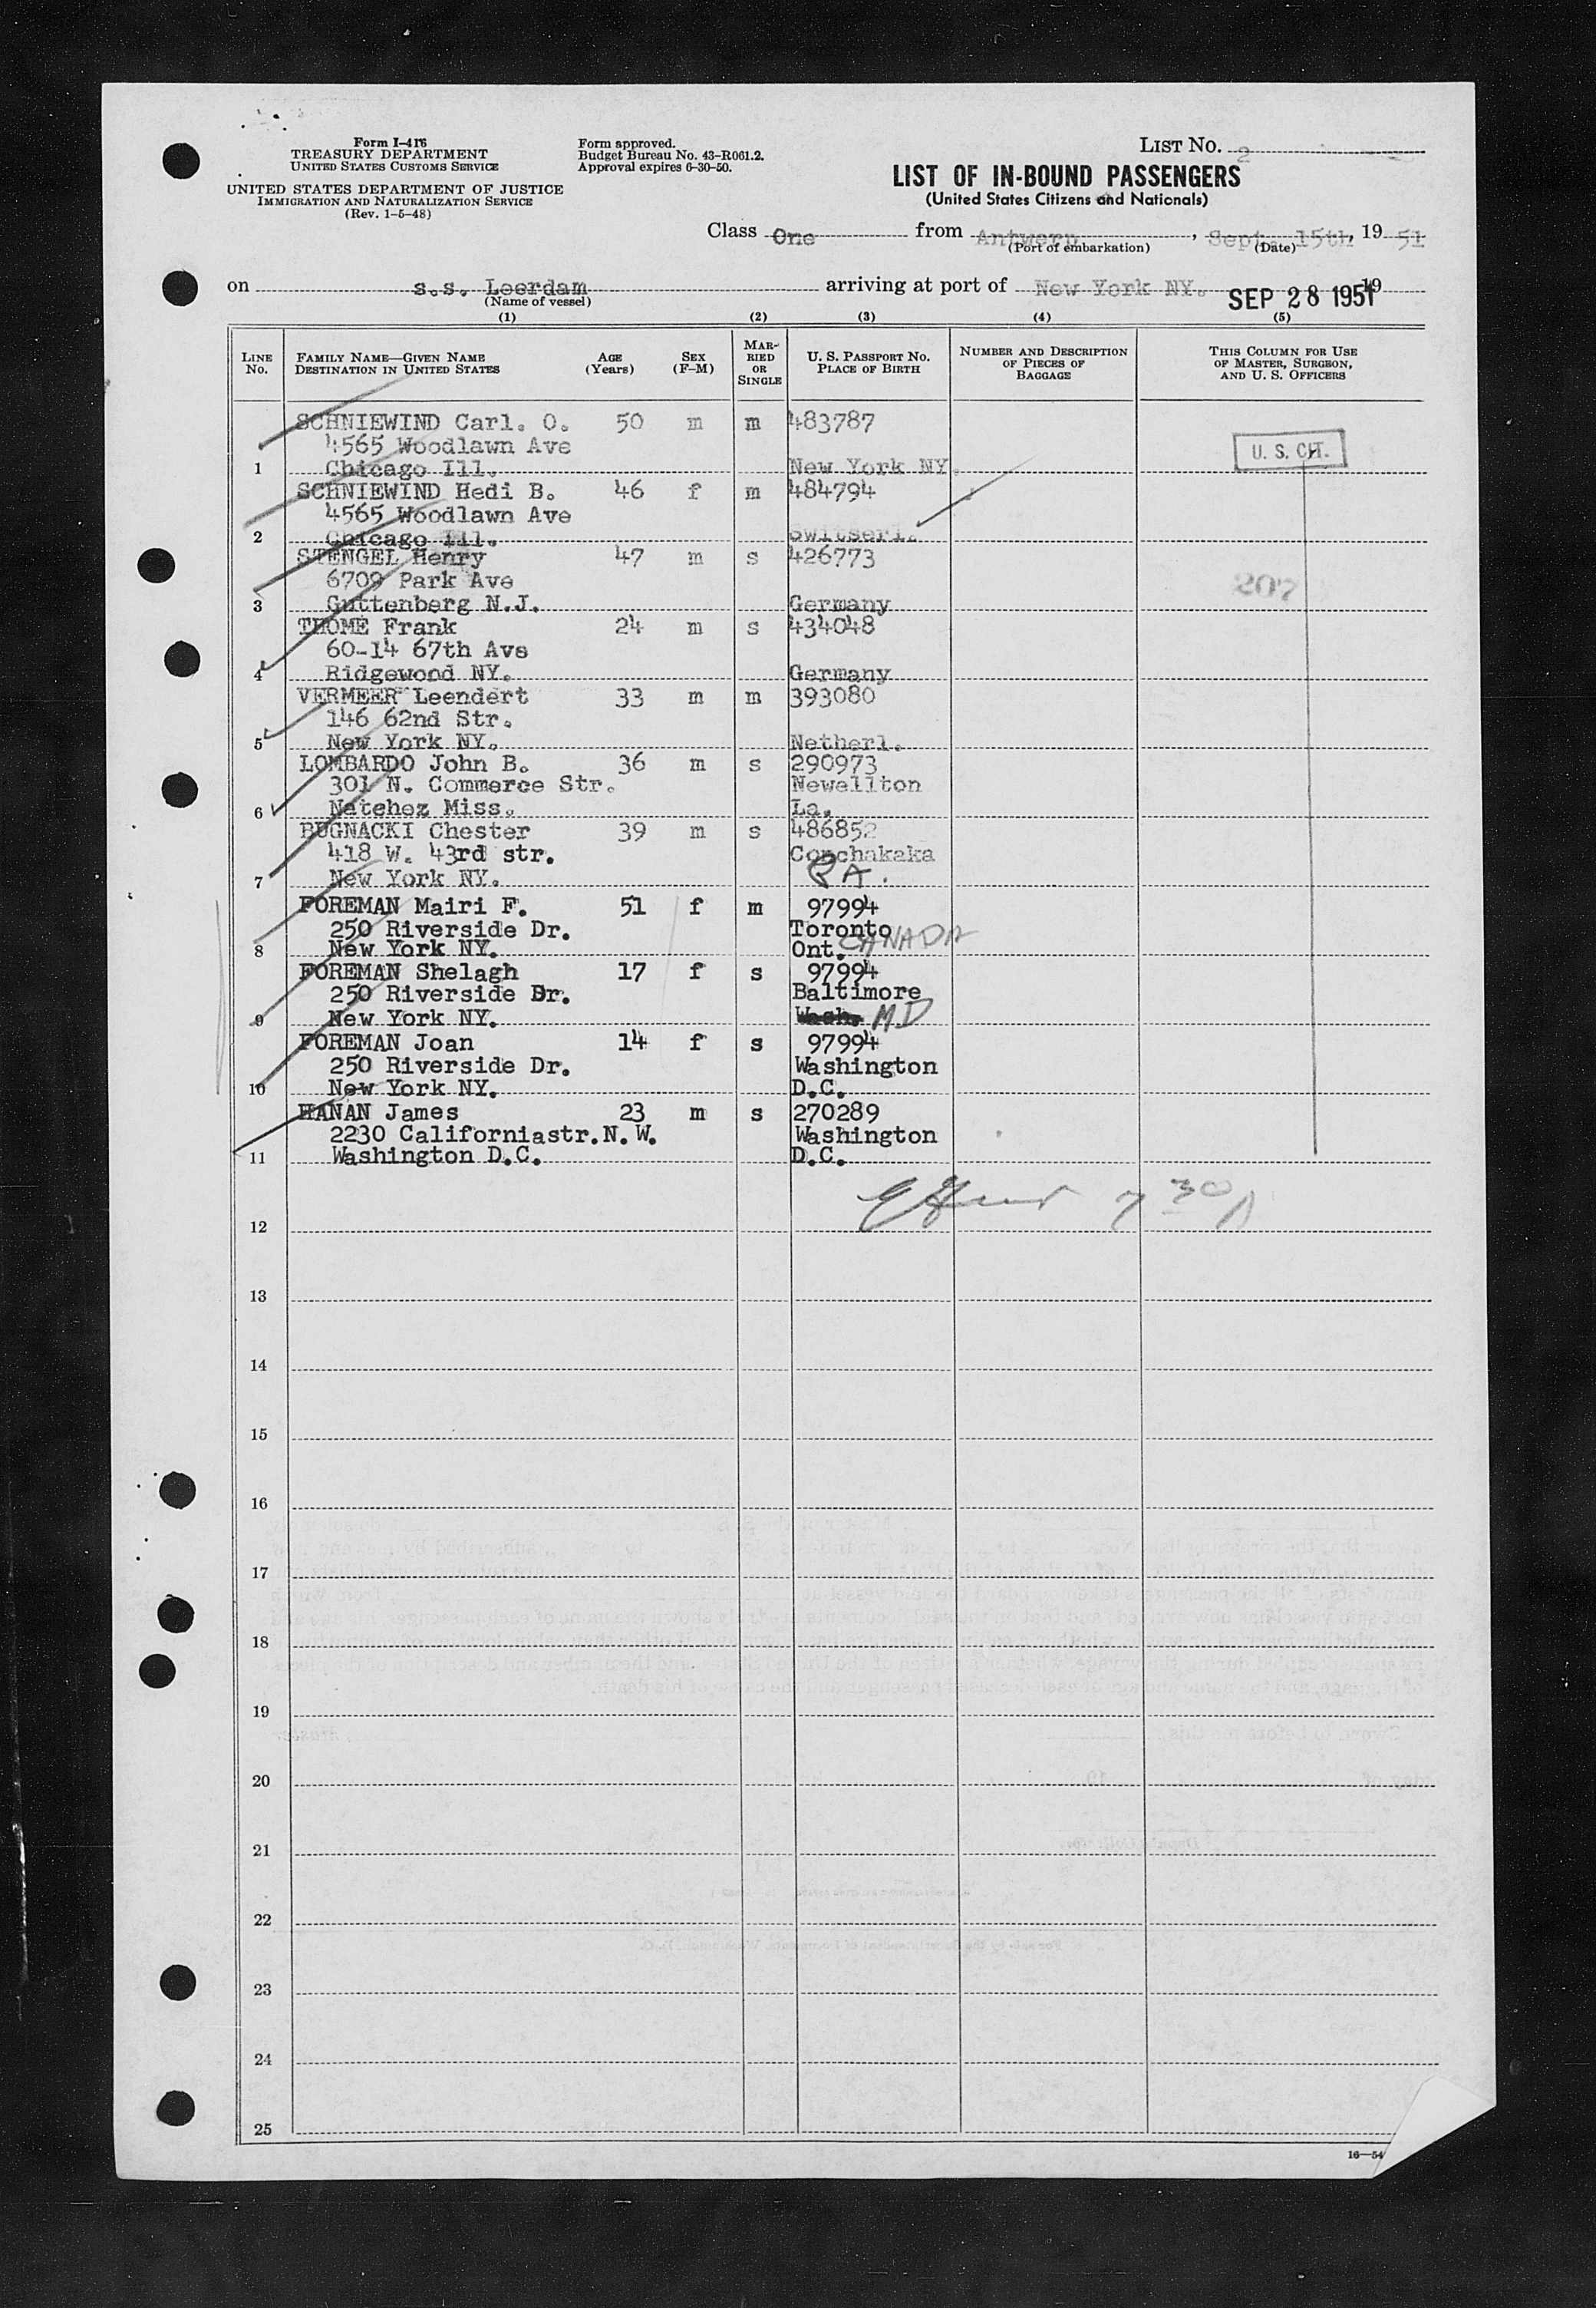 Form I-416
TREASURY DEPARTMENT
UNITED STATES CUSTOMS SERVICE
UNITED STATES DEPARTMENT OF JUSTICE
IMMIGRATION AND NATURALIZATION SERVICE
(Rev. 1-5-48)
Form approved.
Budget Bureau No. 43-R061.2.
Approval expires 6-30-50.
LIST NO. 2
LIST OF IN-BOUND PASSENGERS
(United States Citizens and Nationals)
Class One from Antwerp, Sept. 15th, 19 51
(Port of embarkation) (Date)
on s.s. Leerdam arriving at port of New York NY. SEP 28 1951 19
(Name of vessel)
(1) (2) (3) (4) (5)
LINE NO.
FAMILY NAME—GIVEN NAME
DESTINATION IN UNITED STATES
AGE (Years)
SEX (F-M)
MARRIED OR SINGLE
U. S. PASSPORT NO.
PLACE OF BIRTH
NUMBER AND DESCRIPTION OF PIECES OF BAGGAGE
THIS COLUMN FOR USE OF MASTER, SURGEON, AND U. S. OFFICERS
SCHNIEWIND Carl. O. 50 m m 483787
4565 Woodlawn Ave U. S. CIT.
1 Chicago Ill. New York NY.
SCHNIEWIND Hedi B. 46 f m 484794
4565 Woodlawn Ave
2 Chicago Ill. Switserl.
STENGEL Henry 47 m s 426773
6709 Park Ave 207
3 Guttenberg N.J. Germany
THOME Frank 24 m s 434048
60-14 67th Ave
4 Ridgewood NY. Germany
VERMEER Leendert 33 m m 393080
146 62nd Str.
5 New York NY. Netherl.
LOMBARDO John B. 36 m s 290973
301 N. Commerce Str. Newellton
6 Natchez Miss. La.
BUGNACKI Chester 39 m s 486852
418 W. 43rd str. Conchakaka
7 New York NY. PA.
FOREMAN Mairi F. 51 f m 97994
250 Riverside Dr. Toronto
8 New York NY. Ont. CANADA
FOREMAN Shelagh 17 f s 97994
250 Riverside Dr. Baltimore
9 New York NY. Wash. MD
FOREMAN Joan 14 f s 97994
250 Riverside Dr. Washington
10 New York NY. D.C.
HANAN James 23 m s 270289
2230 Californiastr.N.W. Washington
11 Washington D.C. D.C.
7 30 A
12
13
14
15
16
17
18
19
20
21
22
23
24
25
16—54